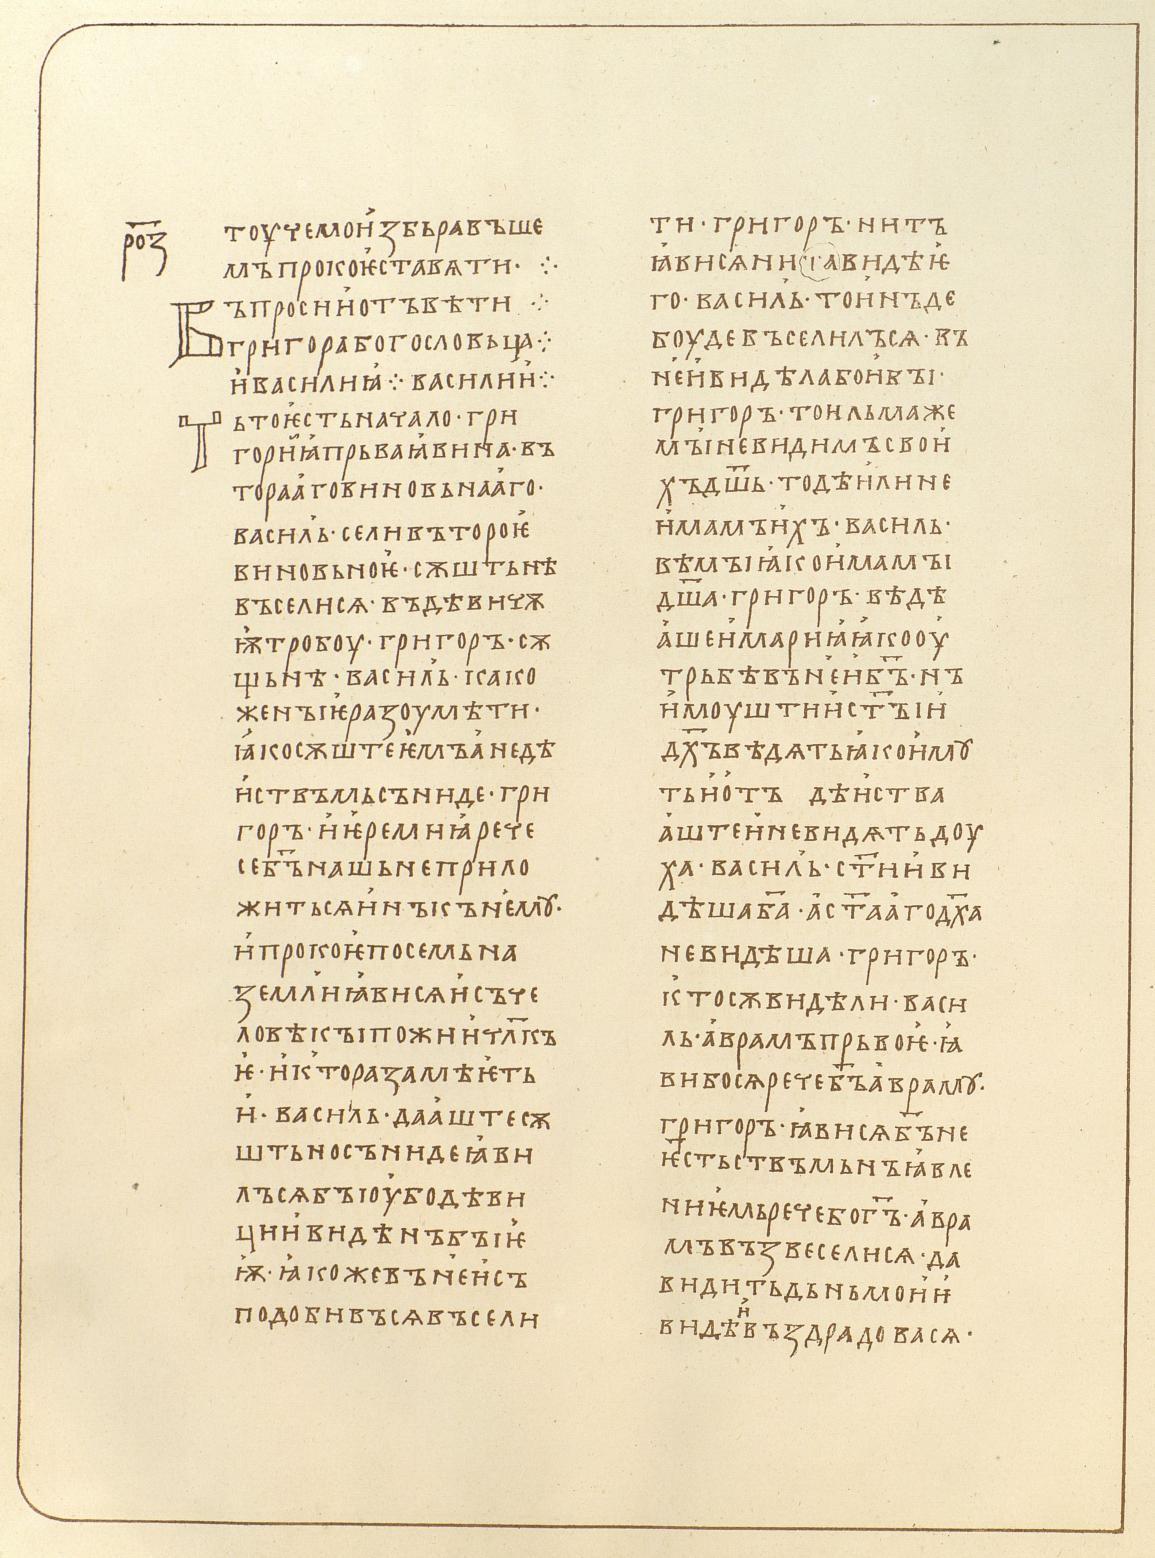 р҃оз
тоучемоꙇ҆збьравъше
мъпрокоѥставѧти· ⁘
Въпросиꙇ҆отъвѣти ⁘
григорабогословьца⁘
ꙇ҆василиꙗ⁘василиꙇ҆⁘
Тьтоѥстьначало·гри
гориꙗпрьваꙗвина·въ
тораа҆говиновьнаа҆го·
василь·селивътороѥ
виновьноѥ·сѫштьнѣ
въселисѧ·въдѣвичѫ
ѭтробоу·григоръ·сѫ
щьнѣ·василь·како
женꙑѥразоумѣти·
ꙗкосѫштеѥмъа҆недѣ
и҆ствъмьсъниде·гри
горъ·и҆ѥремиꙗрече
себ҃ънашьнеприло
житьсѧи҆нъкънѥмꙋ·
и҆прокоѥпосемьна
землиꙗвисѧи҆съче
ловѣкꙑпожии҆чл҃къ
ѥ·и҆кторазамѣѥть
и҆·василь·даа҆штесѫ
штьносънидеꙗви
лъсѧбꙑоу҆бодѣви
ции҆видѣнъбꙑѥ
ѭ·ꙗкожевън҆еи҆съ
подобивъсѧвъсели
ти·григоръ·нитъ
ꙗвисѧнигавидѣѥ
го·василь·тои҆нъде
боудевъселилъсѧ·въ
н҆еи҆видѣлабои҆вꙑ·
григоръ·тоильмаже
мꙑневидимъсвои҆
хъдш҃ь·тодѣи҆лине
и҆мамъи҆хъ·василь·
вѣмꙑꙗкои҆мамꙑ
дш҃а·григоръ·вѣдѣ
а҆шеи҆мариꙗꙗкооу҆
трьбѣвън҆еи҆б҃ъ·нъ
и҆моуштии҆ст҃ꙑи҆
дх҃ъвѣдѧтьꙗкои҆мꙋ
тьи҆о҆тъ дѣи҆ства
а҆штеи҆невидѧтьдоу
ха·василь·ст҃ии҆ви
дѣшаб҃а·а҆ст҃аа҆годх҃а
невидѣша·григоръ·
к҆тосѫвидѣли·васи
ль·а҆врамъпрьвоѥ·ꙗ
вибосѧречеб҃ъа҆врамꙋ·
григоръ·ꙗвисѧб҃ъне
ѥстьствъмьнъꙗвле
ниѥмьречебог҃ъ·а҆вра
мъвъзвеселисѧ·да
видитьдьньмои҆и҆
видѣи҆въздрадовасѧ·